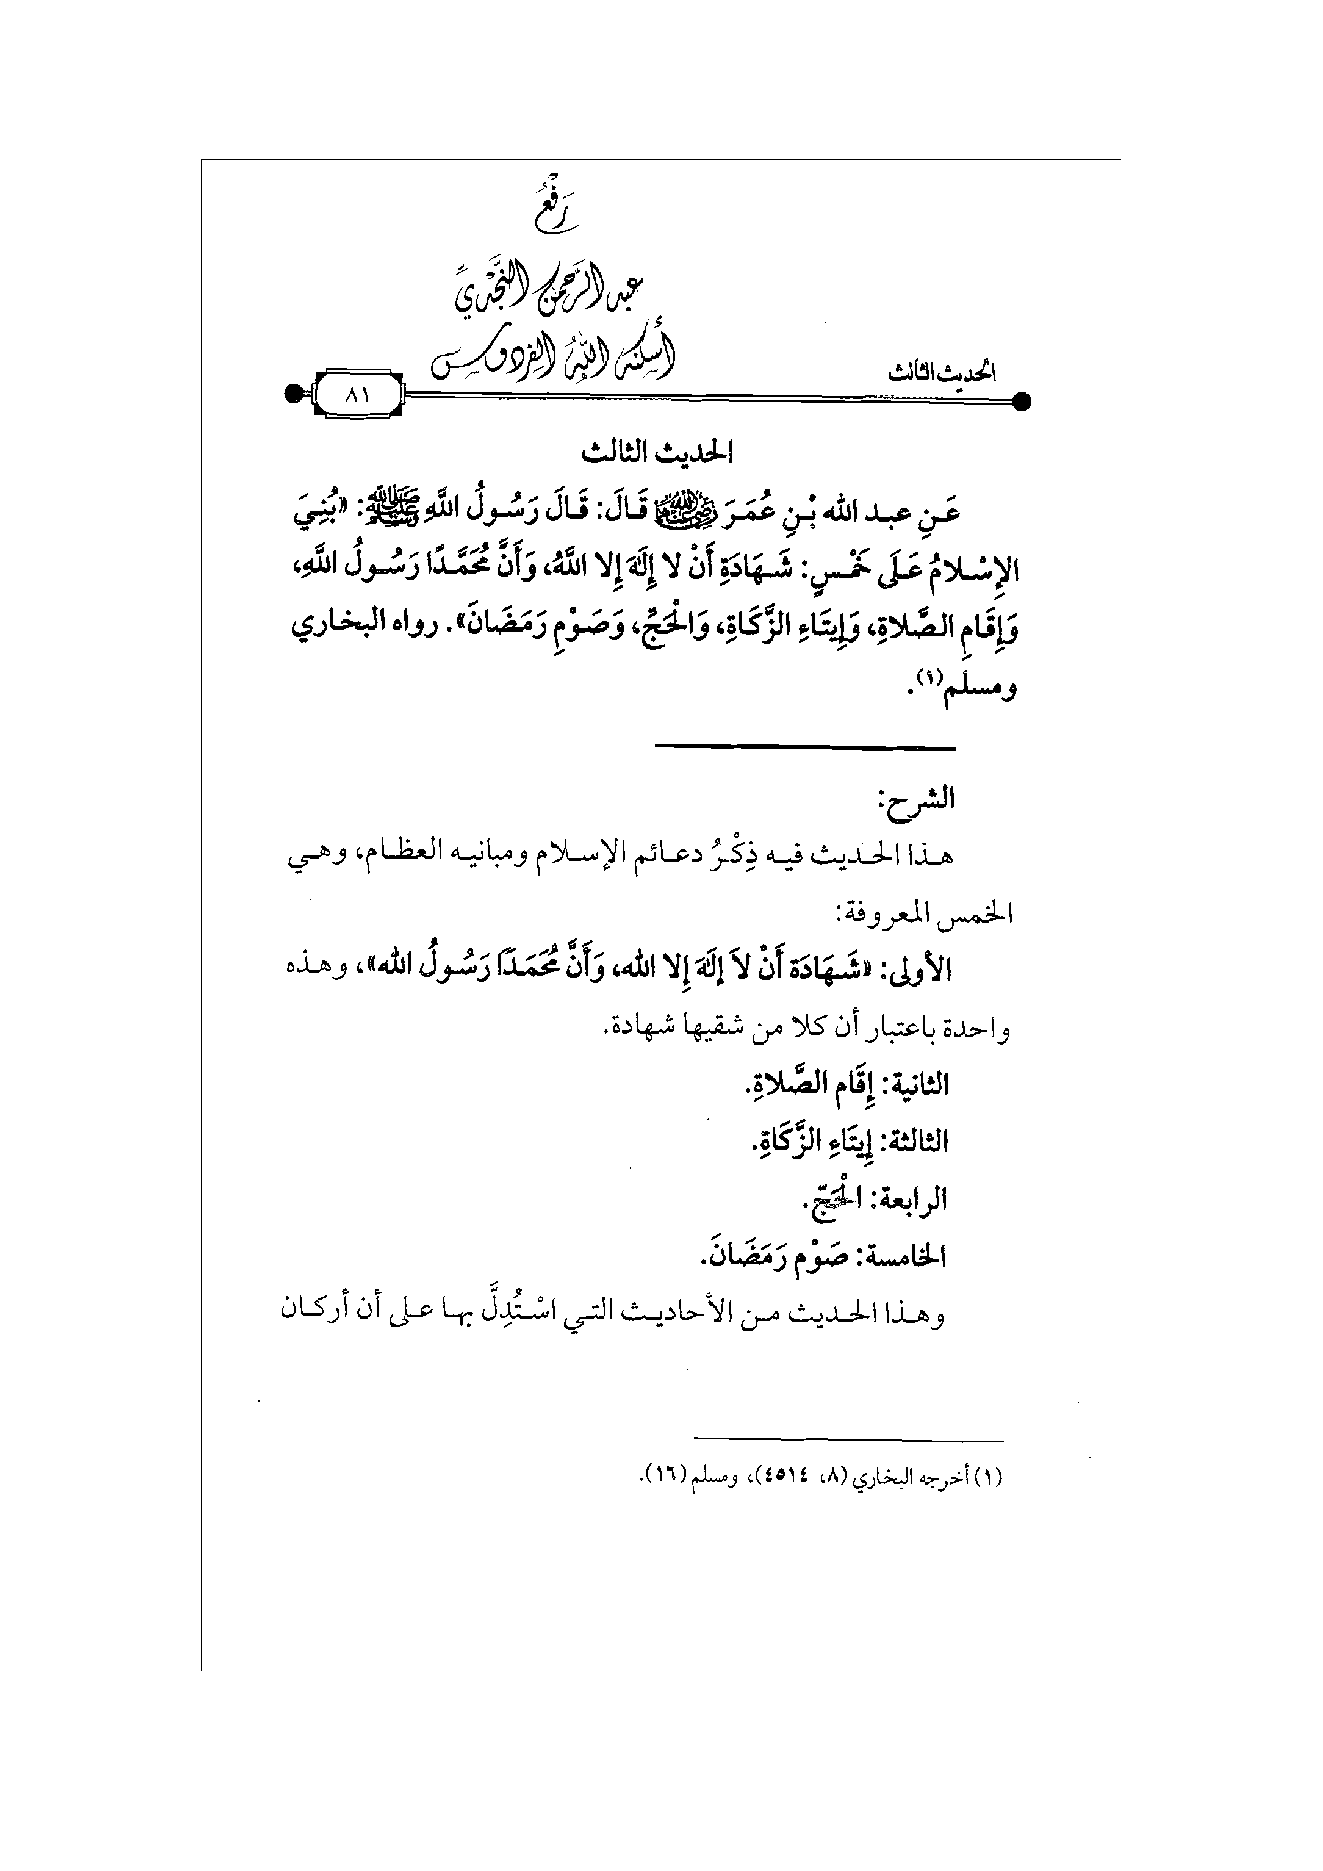 رَفْعُ
عبد الرحمن النجدي
أسكنه الله الفردوس
الحديث الثالث
٨١
الحديث الثالث
عَنِ عبد الله بْنِ عُمَرَ رضي الله عنهما قَالَ: قَالَ رَسُولُ اللَّهِ ﷺ: «بُنِيَ
الإِسْلامُ عَلَى خَمْسٍ: شَهَادَةِ أَنْ لا إِلَهَ إِلا اللَّهُ، وَأَنَّ مُحَمَّدًا رَسُولُ اللَّهِ،
وَإِقَامِ الصَّلاةِ، وَإِيتَاءِ الزَّكَاةِ، وَالْحَجِّ، وَصَوْمِ رَمَضَانَ». رواه البخاري
ومسلم(١).
الشرح:
هذا الحديث فيه ذِكْرُ دعائم الإسلام ومبانيه العظام، وهي
الخمس المعروفة:
الأولى: «شَهَادَة أَنْ لاَ إِلَهَ إِلا الله، وَأَنَّ مُحَمَدًا رَسُولُ الله»، وهذه
واحدة باعتبار أن كلا من شقيها شهادة.
الثانية: إِقَام الصَّلاةِ.
الثالثة: إِيتَاءِ الزَّكَاةِ.
الرابعة: الْحَجّ.
الخامسة: صَوْم رَمَضَانَ.
وهذا الحديث من الأحاديث التي اسْتُدِلَّ بها على أن أركان
(١) أخرجه البخاري (٨، ٤٥١٤)، ومسلم (١٦).